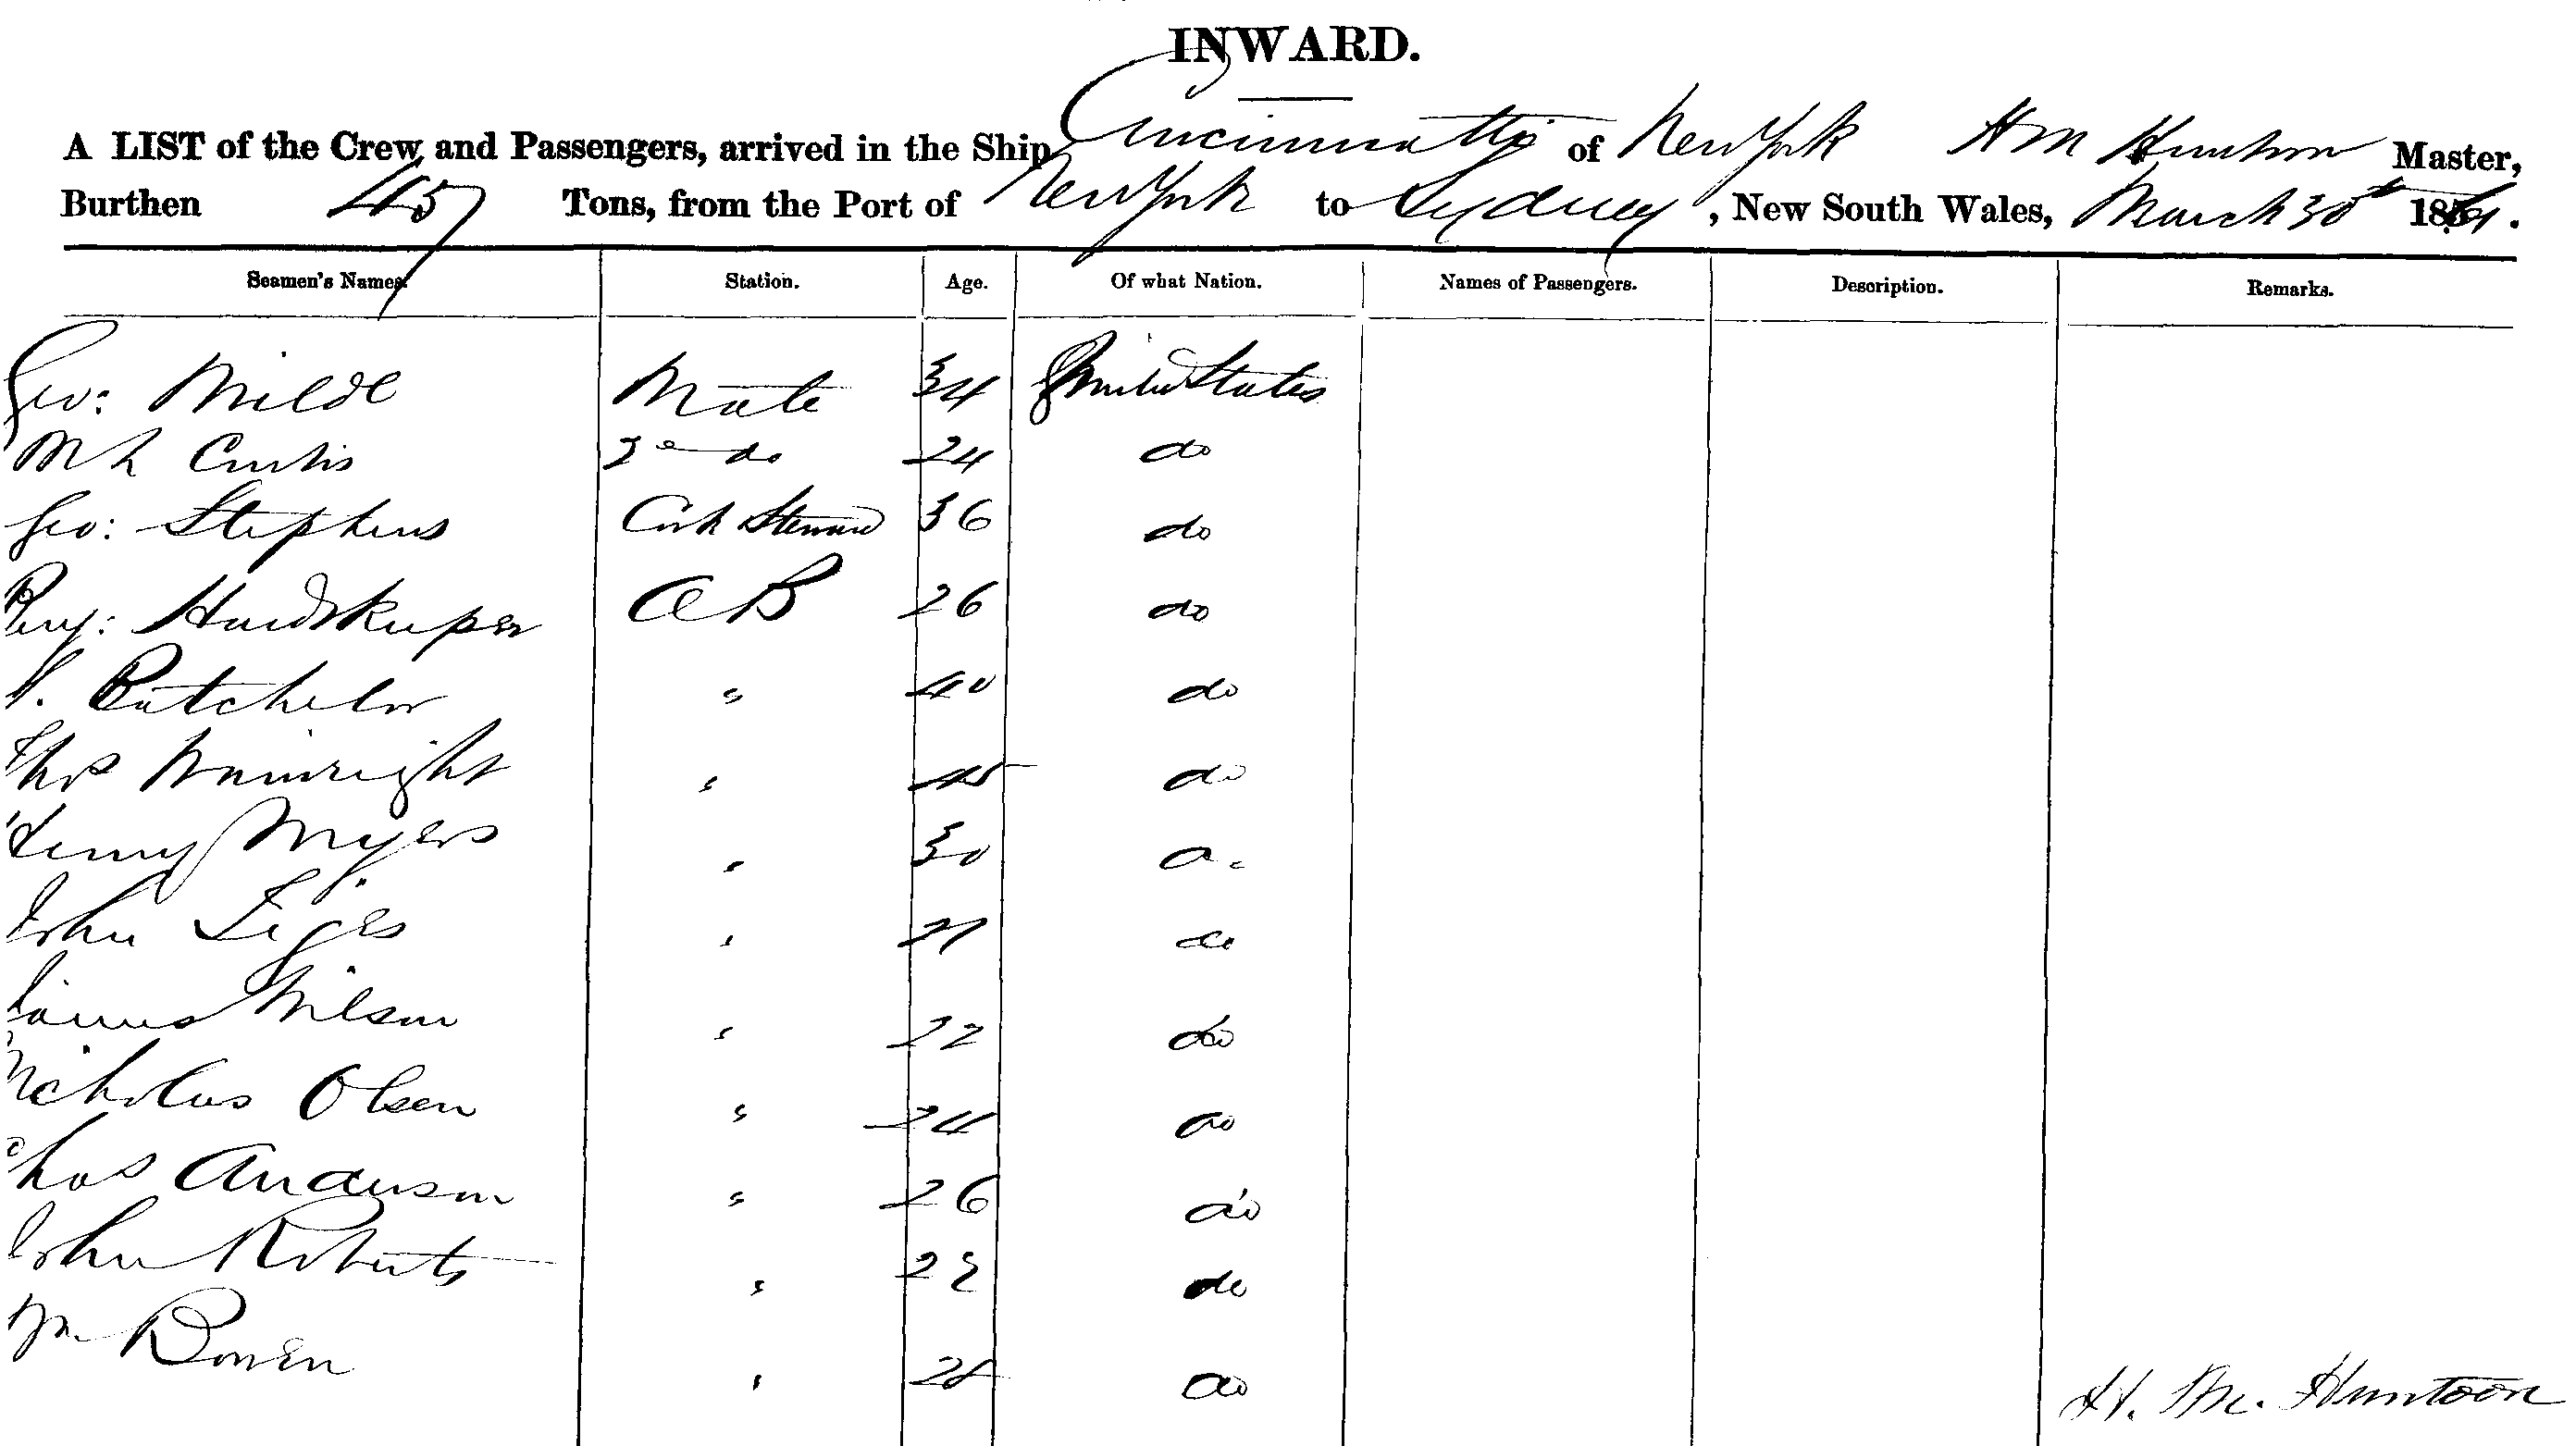 INWARD.
A LIST of the Crew and Passengers, arrived in the Ship Cincinnatti of New York H M Huntoon Master,
Burthen 457 Tons, from the Port of New York to Sydney, New South Wales, March 30th 1861.
Seamen's Names. Station. Age. Of what Nation. Names of Passengers. Description. Remarks.
Geo: Milde Mate 34 United States
M L Curtis 2d do 24 do
Geo: Stephens Cook Steward 36 do
Benj: AB 26 do
Batchelor " 40 do
Thos Wainright " 45 do
Henry Myers " 30 do
John " 21 do
James Wilson " 22 do
Nicholas Olsen " 24 do
Chas Anderson " 26 do
John Roberts " 22 do
Wm Bowen " do
H. M. Huntoon